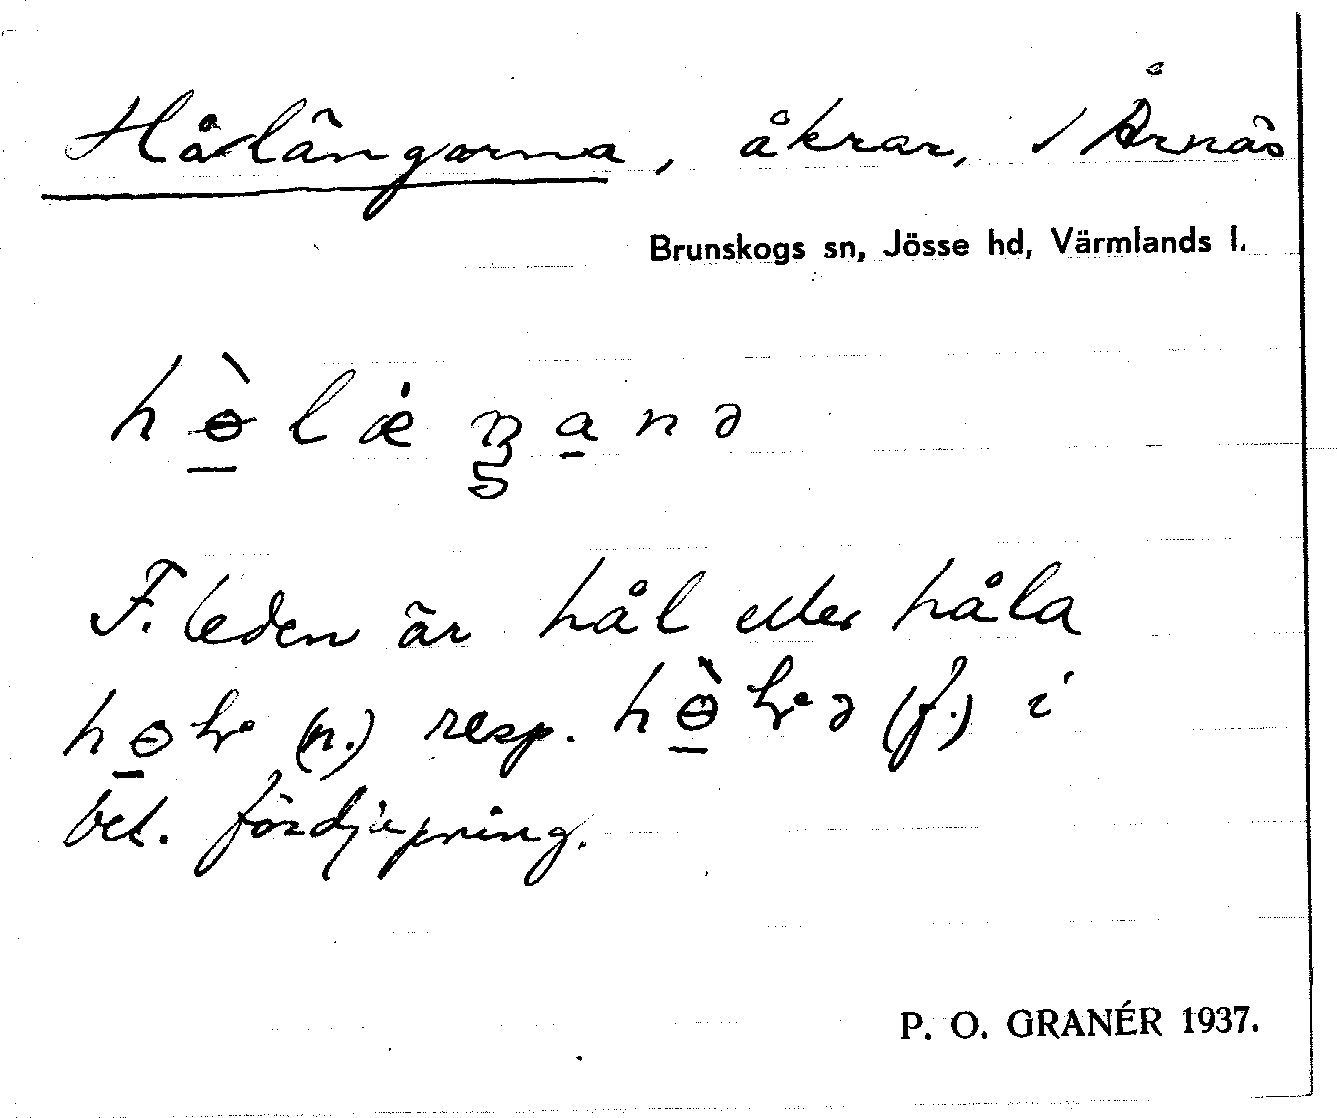 Hålängorna, åkrar, / Årnäs
Brunskogs sn, Jösse hd, Värmlands l.
hɵ̀lǽŋana
F. leden är hål eller håla
(n.) resp. (f.) i
bet. fördjupning.
P. O. GRANÉR 1937.